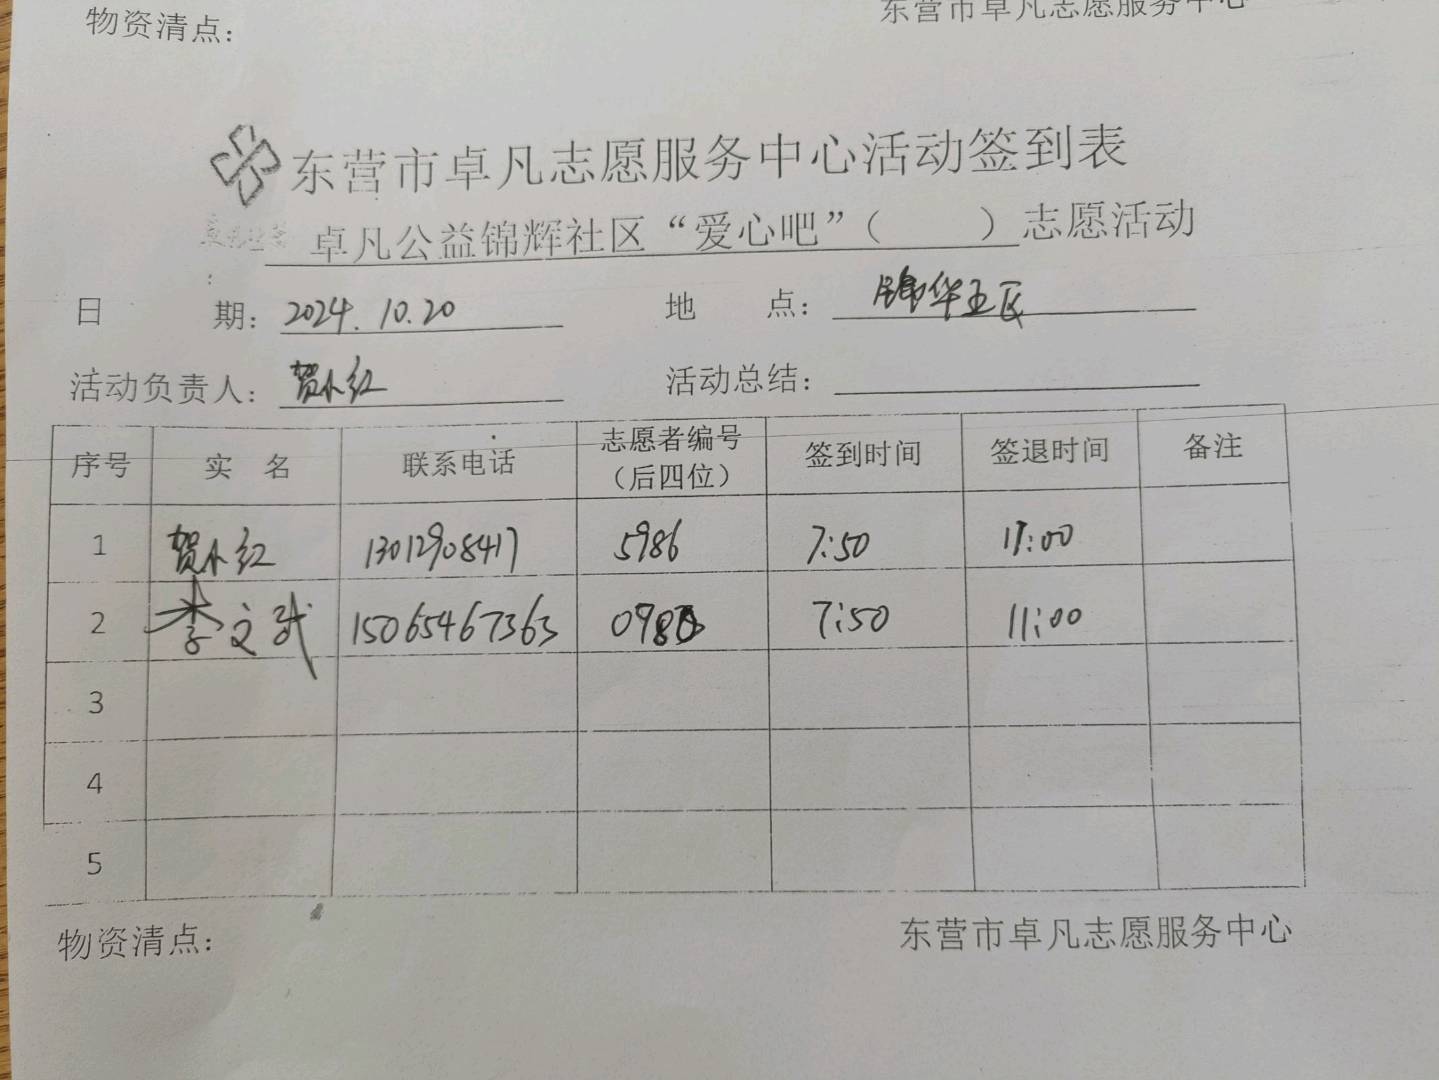 物资清点:
东营市卓凡志愿服务中心
东营市卓凡志愿服务中心活动签到表
卓凡公益锦辉社区“爱心吧”（ ）志愿活动
日 期: 2024.10.20 地 点: 锦华五区
活动负责人: 贺小红 活动总结:
序号 实 名 联系电话 志愿者编号（后四位） 签到时间 签退时间 备注
1 贺小红 13012908417 5986 7:50 11:00
2 李文武 15065467363 7:50 11:00
3
4
5
物资清点:
东营市卓凡志愿服务中心